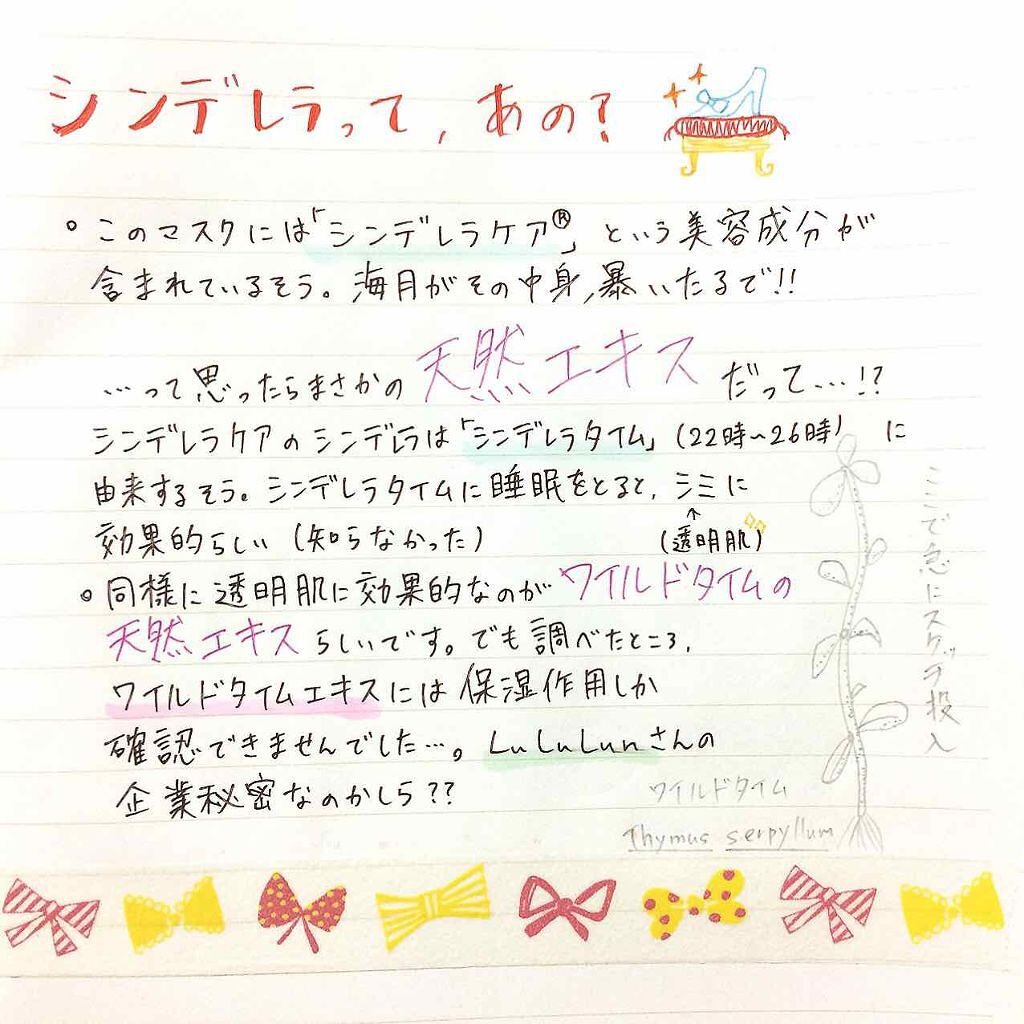 シンデレラって、あの？
○このマスクには「シンデレラケア®」という美容成分が
含まれているそう。海月がその中身、暴いたるで!!
…って思ったらまさかの天然エキスだって…!?
シンデレラケアのシンデレラは「シンデレラタイム」(22時〜26時)に
由来するそう。シンデレラタイムに睡眠をとると、シミに
効果的らしい(知らなかった)
↑
(透明肌)
○同様に透明肌に効果的なのがワイルドタイムの
天然エキスらしいです。でも調べたところ、
ワイルドタイムエキスには保湿作用しか
確認できませんでした…。LuLuLunさんの
企業秘密なのかしら??
ここで急にスケッチ投入
ワイルドタイム
Thymus serpyllum